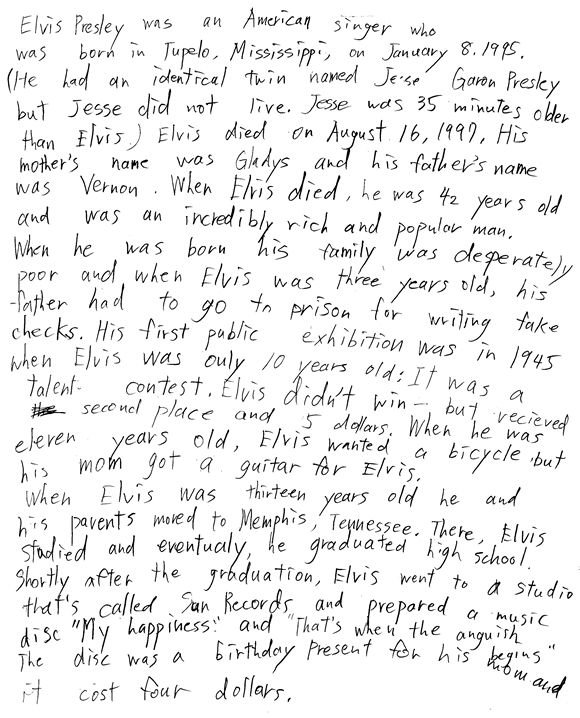 Elvis Presley was an American singer who
was born in Tupelo, Mississippi, on January 8. 1995.
(He had an identical twin named Jesse Garon Presley
but Jesse did not live. Jesse was 35 minutes older
than Elvis.) Elvis died on August 16, 1997. His
mother's name was Gladys and his father's name
was Vernon. When Elvis died, he was 42 years old
and was an incredibly rich and popular man.
When he was born his family was desperately
poor and when Elvis was three years old, his
father had to go to prison for writing fake
checks. His first public exhibition was in 1945
when Elvis was only 10 years old: It was a
talent contest. Elvis didn't win - but recieved
second place and 5 dollars. When he was
eleven years old, Elvis wanted a bicycle but
his mom got a guitar for Elvis.
When Elvis was thirteen years old he and
his parents moved to Memphis, Tennessee. There, Elvis
studied and eventualy, he graduated high school.
Shortly after the graduation, Elvis went to a studio
that's called Sun Records and prepared a music
disc "My happiness" and "That's when the anguish
begins"
The disc was a birthday present for his mom and
it cost four dollars.